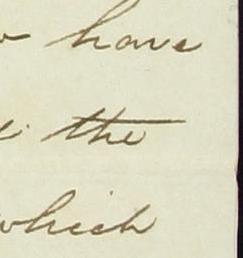 have
the
which